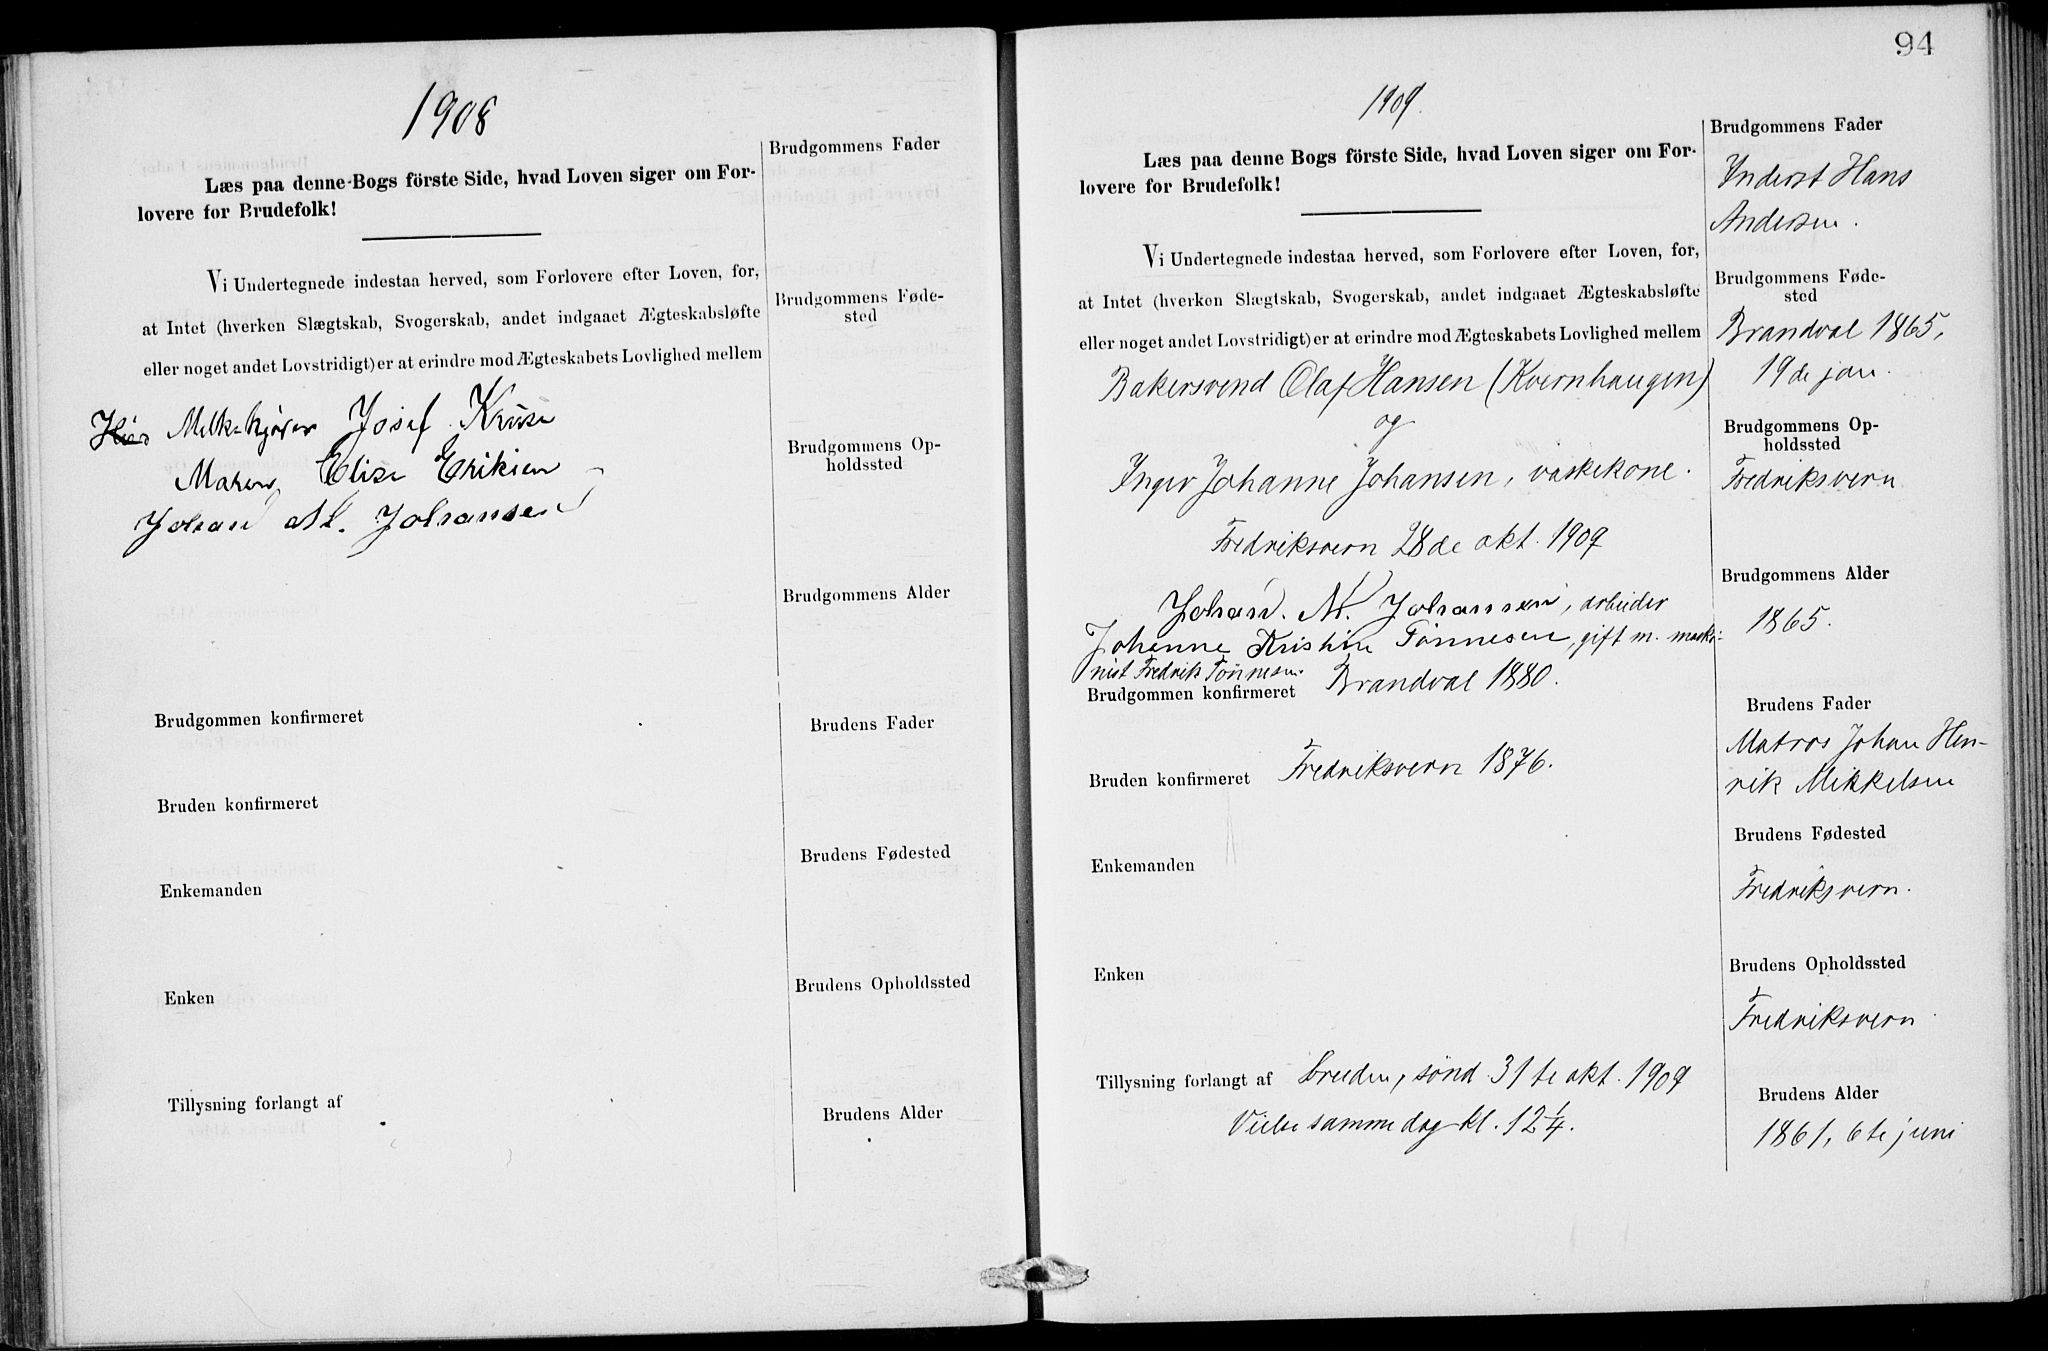 1908
Læs paa denne Bogs förste Side, hvad Loven siger om For-
lovere for Brudefolk!
Vi Undertegnede indestaa herved, som Forlovere efter Loven, for,
at Intet (hverken Slægtskab, Svogerskab, andet indgaaet Ægteskabsløfte
eller noget andet Lovstridigt) er at erindre mod Ægteskabets Lovlighed mellem
Melkekjører Josef Kruse
Maren Elise Eriksen
Johan M. Johansen
Brudgommen konfirmeret
Bruden konfirmeret
Enkemanden
Enken
Tillysning forlangt af
Brudgommens Fader
Brudgommens Føde-
sted
Brudgommens Op-
holdssted
Brudgommens Alder
Brudens Fader
Brudens Fødested
Brudens Opholdssted
Brudens Alder
94
1909.
Læs paa denne Bogs förste Side, hvad Loven siger om For-
lovere for Brudefolk!
Vi Undertegnede indestaa herved, som Forlovere efter Loven, for,
at Intet (hverken Slægtskab, Svogerskab, andet indgaaet Ægteskabsløfte
eller noget andet Lovstridigt) er at erindre mod Ægteskabets Lovlighed mellem
Bakersvend Olaf Hansen (Kvernhaugen)
og
Inger Johanne Johansen, vaskekone.
Fredriksvern 28de okt. 1909
Johan. M. Johansen, arbeider
Johanne Kristine Tönnesen, gift m. maski-
nist Fredrik Tønnesen.
Brudgommen konfirmeret Brandval 1880.
Bruden konfirmeret Fredriksvern 1876.
Enkemanden
Enken
Tillysning forlangt af Bruden, sønd. 31te okt. 1909
Vielse samme dag kl. 12 1/4.
Brudgommens Fader
Inderst Hans
Andersen.
Brudgommens Føde-
sted
Brandval 1865,
19de jan.
Brudgommens Op-
holdssted
Fredriksvern
Brudgommens Alder
1865.
Brudens Fader
Matros Johan Hen-
rik Mikkelsen
Brudens Fødested
Fredriksvern.
Brudens Opholdssted
Fredriksvern
Brudens Alder
1861, 6te juni